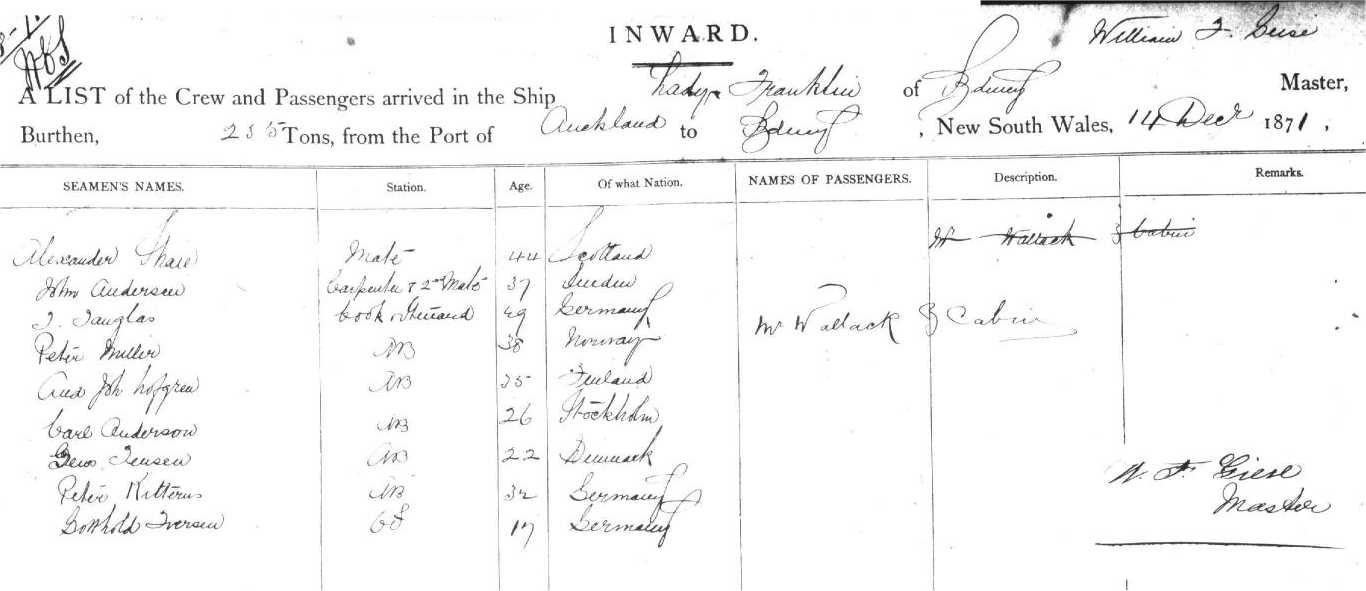 INWARD.
William F. Geise
A LIST of the Crew and Passengers arrived in the Ship Lady Franklin of Sydney Master,
Burthen, 235 Tons, from the Port of Auckland to Sydney, New South Wales, 14 Decr 1871,
SEAMEN'S NAMES. Station. Age. Of what Nation. NAMES OF PASSENGERS. Description. Remarks.
Mr Wallack Cabin
Alexander Mate 44 Scotland
John Andersen Carpenter & 2nd Mate 37 Sweden
Cook & Steward 49 Germany
Mr Wallack Cabin
Peter Miller AB 38 Norway
And Joh Lofgren AB 25 Finland
Carl Anderson AB 26 Stockholm
Jensen AB 22 Denmark
Peter AB 32 Germany
Gotthold Iversen OS 17 Germany
W. F. Giese
Master